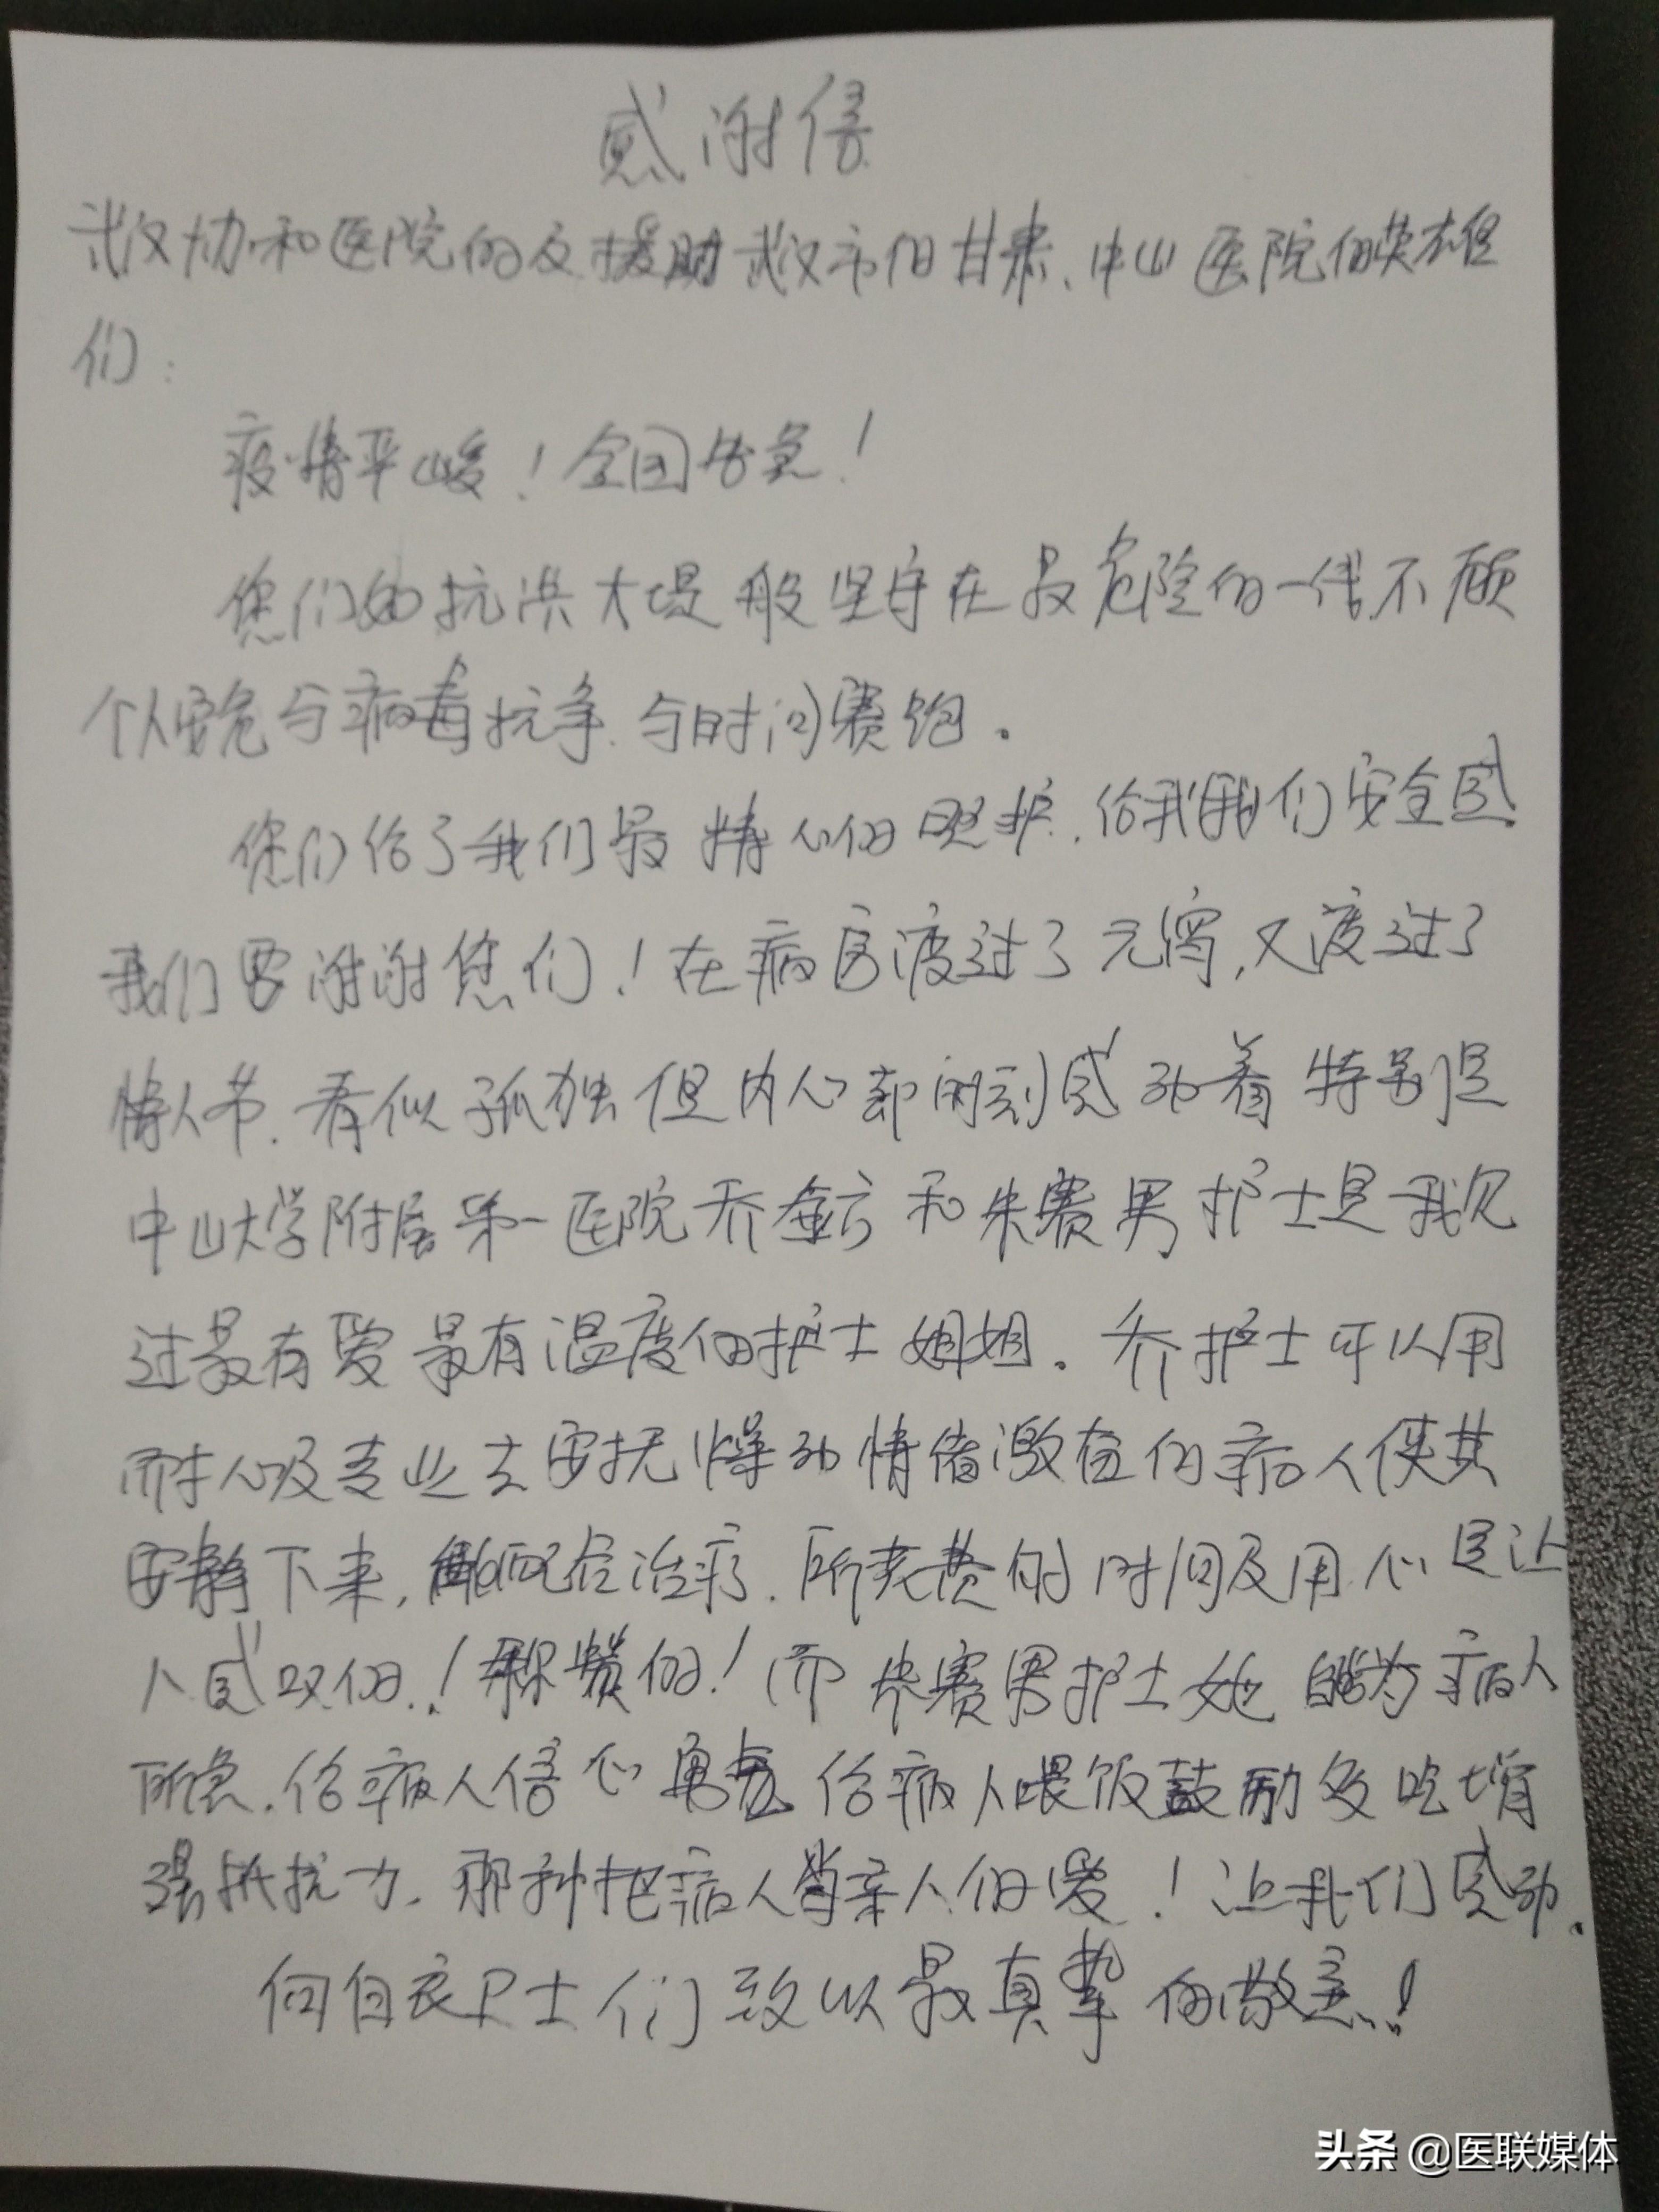 感谢信
武汉协和医院的及援助武汉市的甘肃、中山医院的英雄
们：
疫情严峻！全国告急！
您们如抗洪大堤般坚守在最危险的一线不顾
个人安危与病毒抗争.与时间赛跑。
您们给了我们最精心的照护.给我我们安全感
我们要谢谢您们！在病房渡过了元宵,又度过了
情人节.看似孤独但内心却时刻感动着特别是
中山大学附属第一医院乔 和朱赛男护士是我见
过最有爱最有温度的护士姐姐。乔护士可以用
耐心及专业去安抚燥动情绪激 的病人使其
安静下来,配合治疗.所花费的时间及用心是让
人感叹的.! 的！而朱赛男护士她 为病人
所急.给病人信心勇气给病人喂饭鼓励多吃增
强抵抗力.那种把病人当亲人的爱！让我们感动.
向白衣卫士们致以最真挚的敬意!
头条 @医联媒体